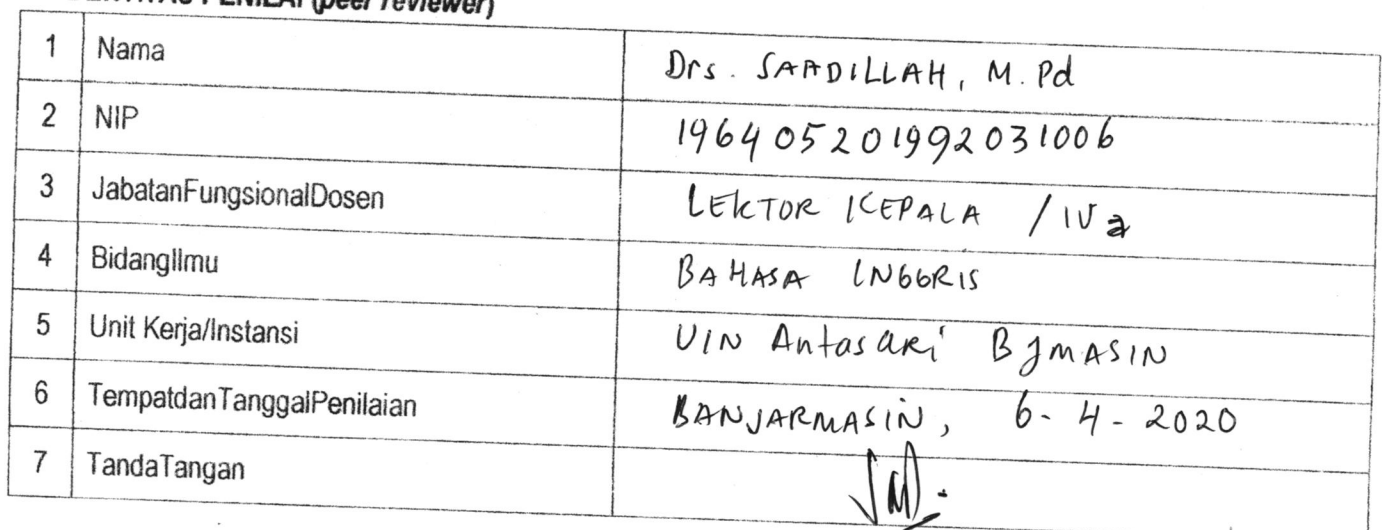 PENILAI (peer reviewer)
1 Nama Drs. SAADILLAH, M.Pd
2 NIP 196405201992031006
3 JabatanFungsionalDosen LEKTOR KEPALA / IVa
4 BidangIlmu BAHASA INGGRIS
5 Unit Kerja/Instansi UIN Antasari BJMASIN
6 TempatdanTanggalPenilaian BANJARMASIN, 6-4-2020
7 TandaTangan